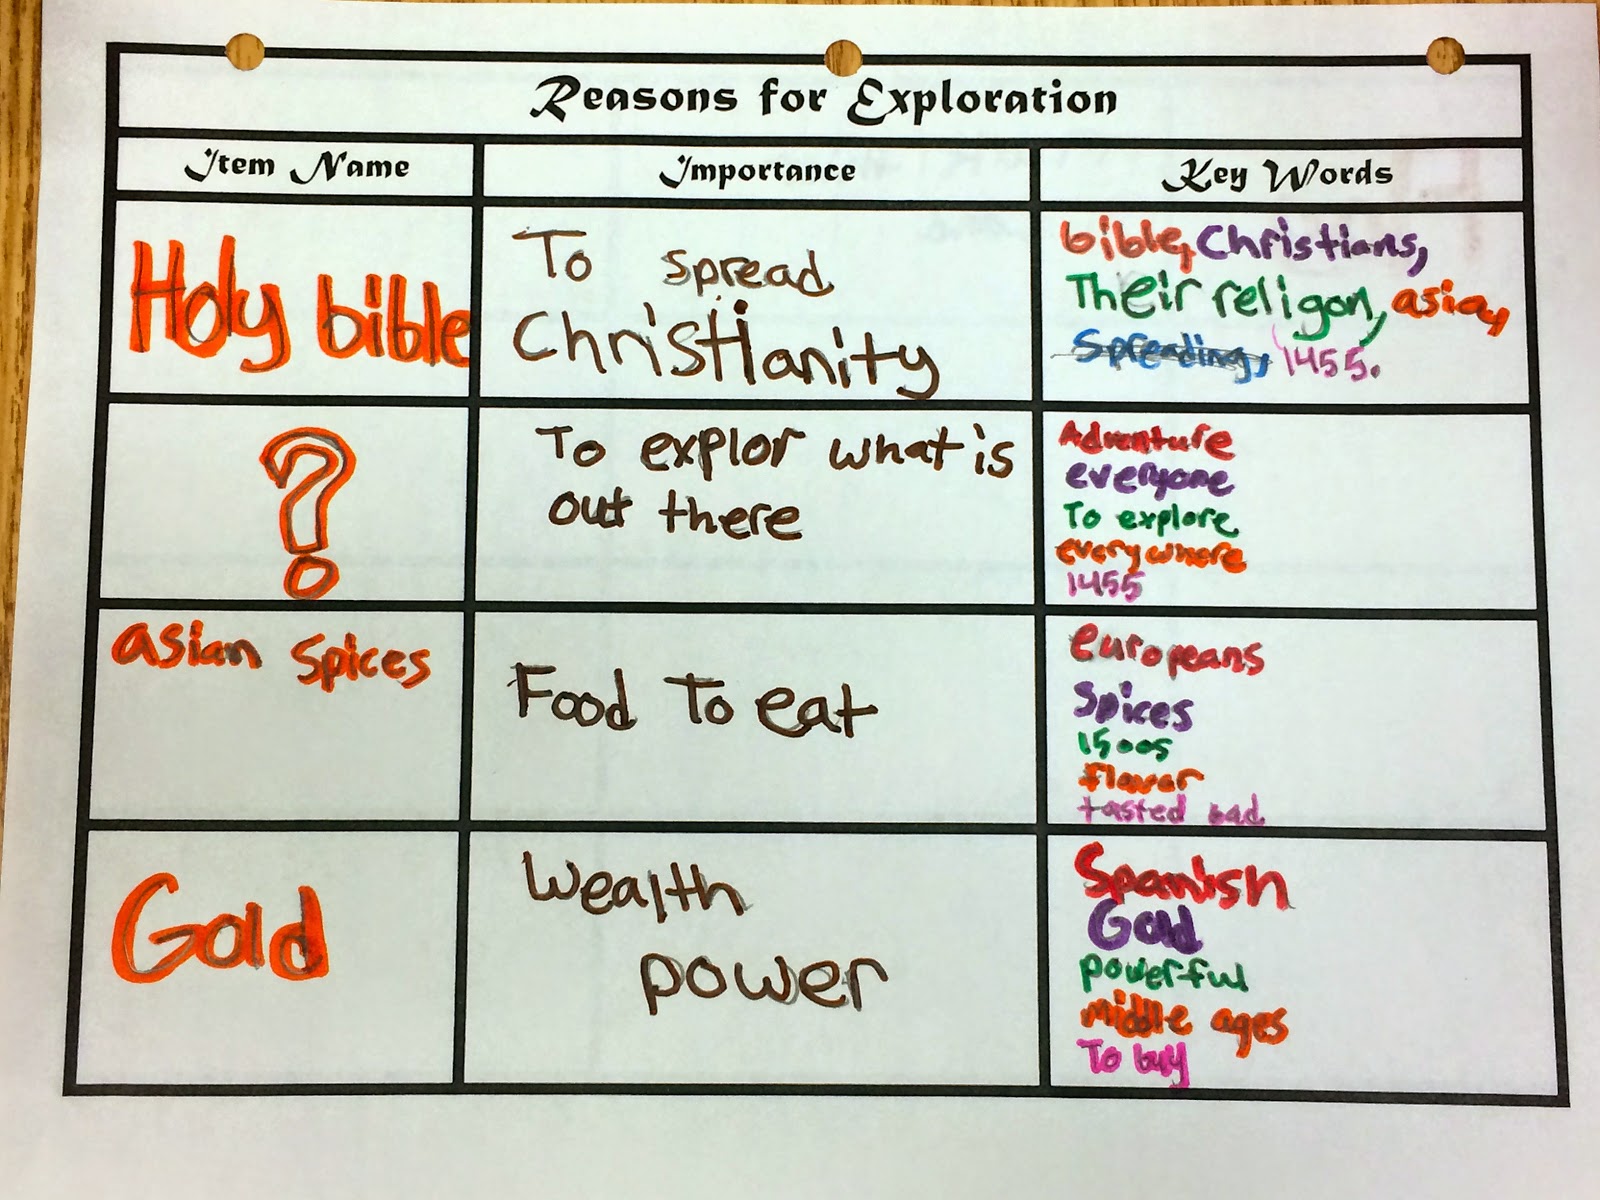 Reasons for Exploration
Item Name
Importance
Key Words
Holy bible
To spread
Christianity
bible, Christians,
Their religon, asia,
Spreading, 1455.
?
To explor what is
out there
Adventure
everyone
To explore
everywhere
1455
asian Spices
Food To eat
europeans
Spices
1500s
flavor
tasted bad
Gold
Wealth
power
Spanish
Gold
powerful
middle ages
To buy